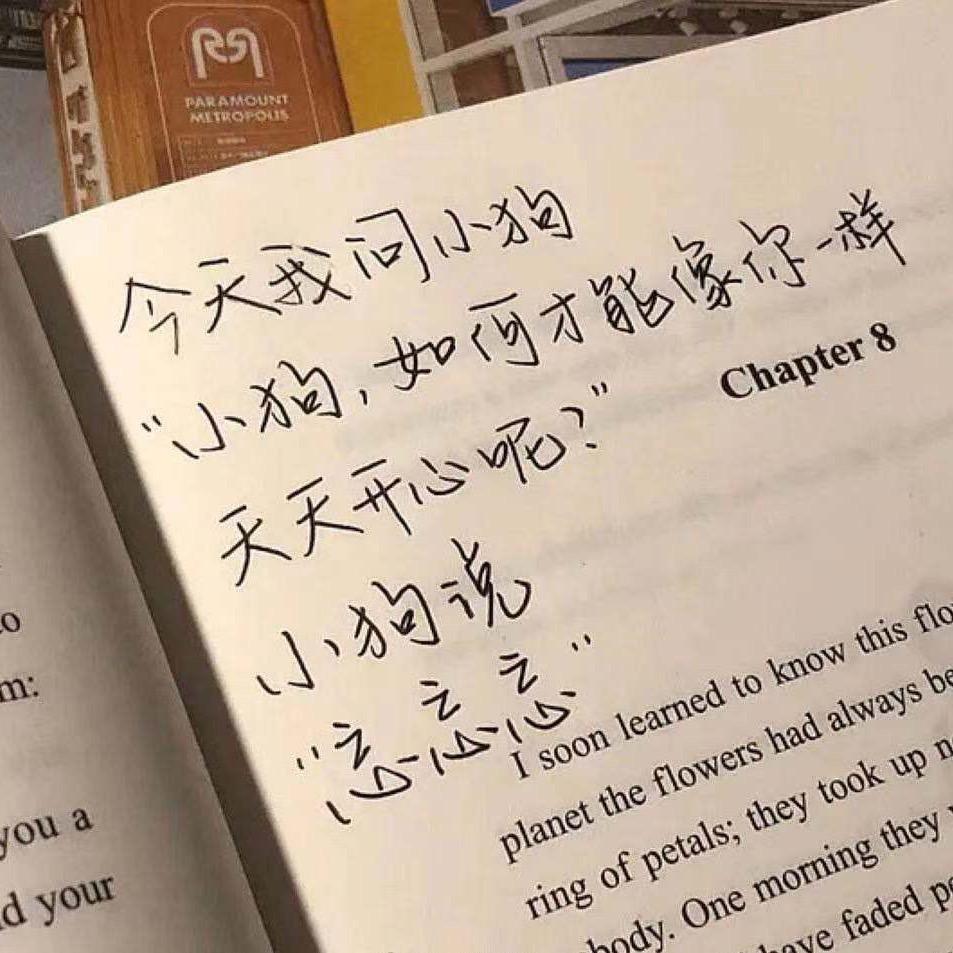 PARAMOUNT
METROPOLIS
今天我问小狗
“小狗，如何才能像你一样
天天开心呢？”
小狗说
“忘忘忘”
Chapter 8
I soon learned to know this flo
planet the flowers had always be
ring of petals; they took up n
body. One morning they
have faded pe
m:
you a
d your